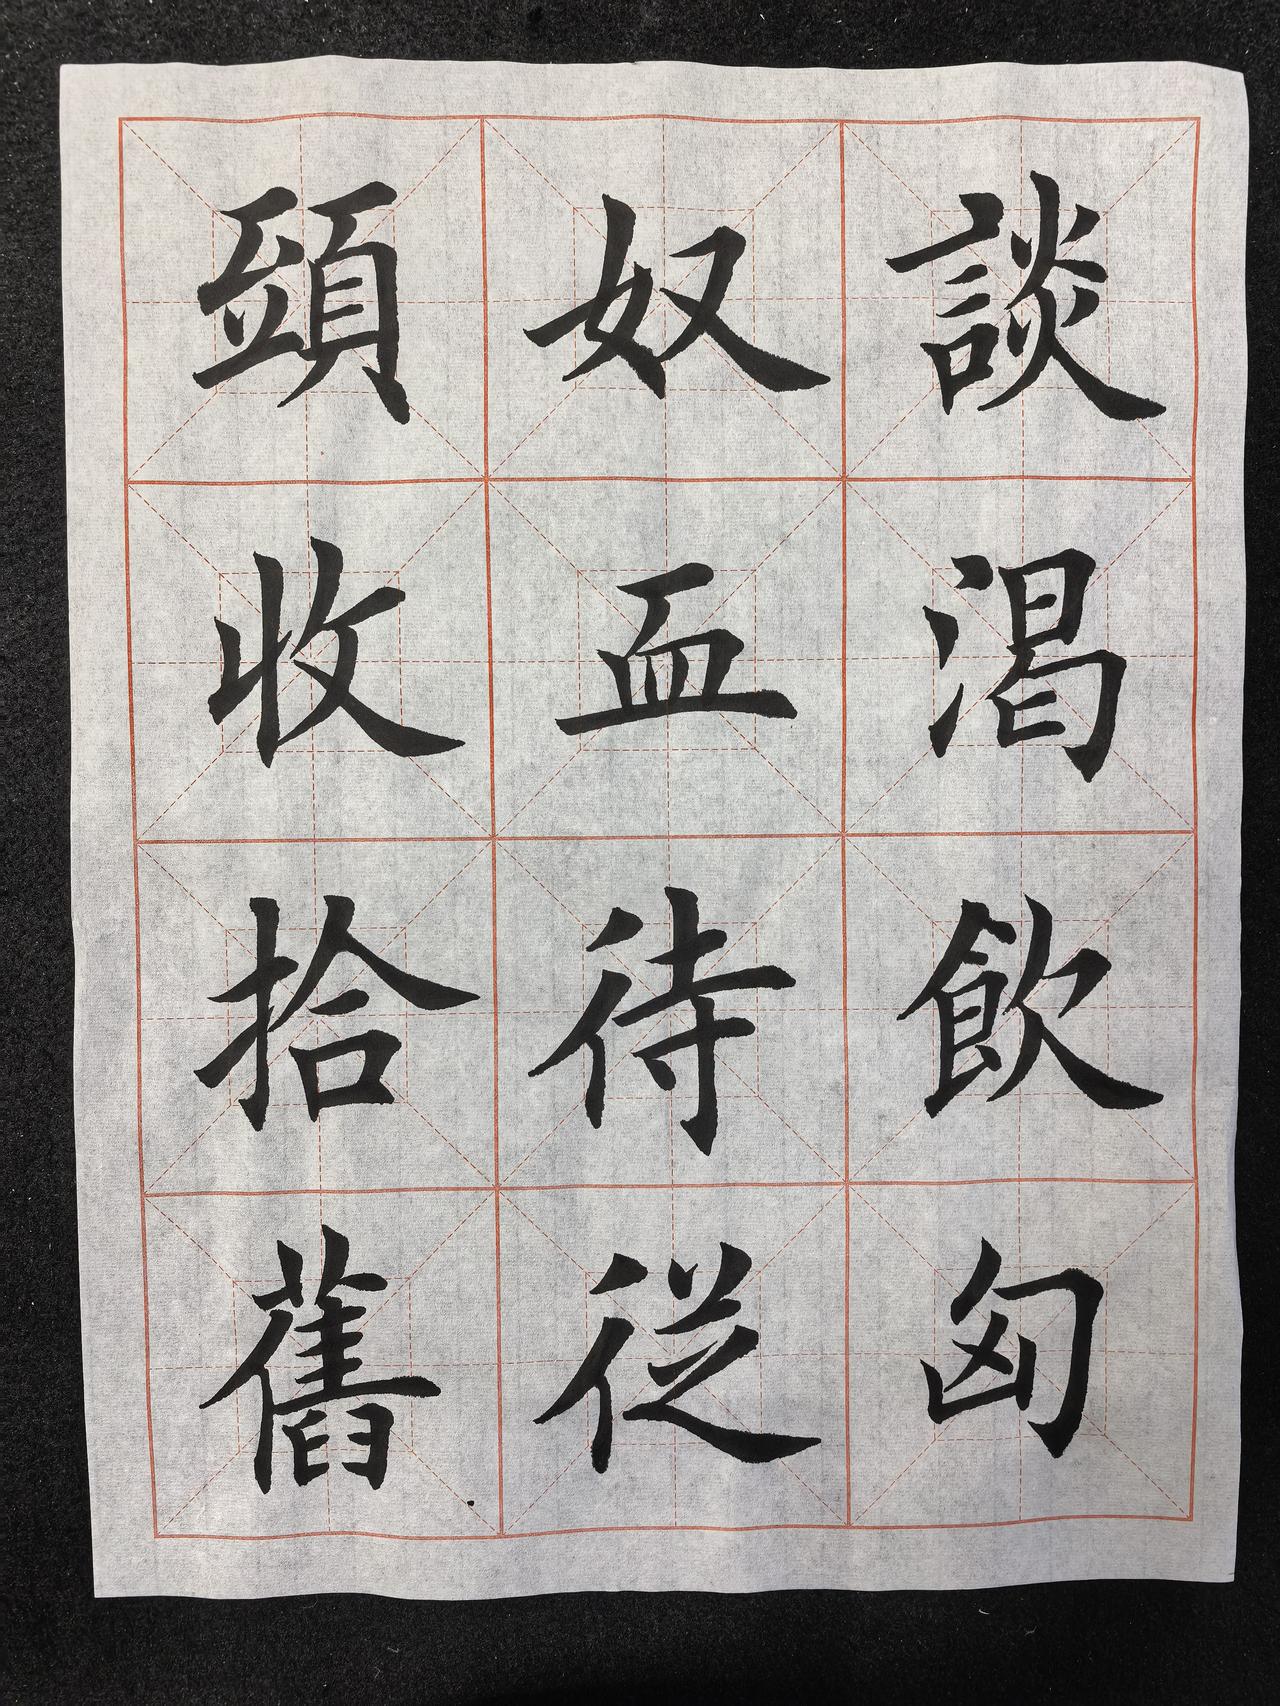 談渴飲匈
奴血待従
頭收拾舊